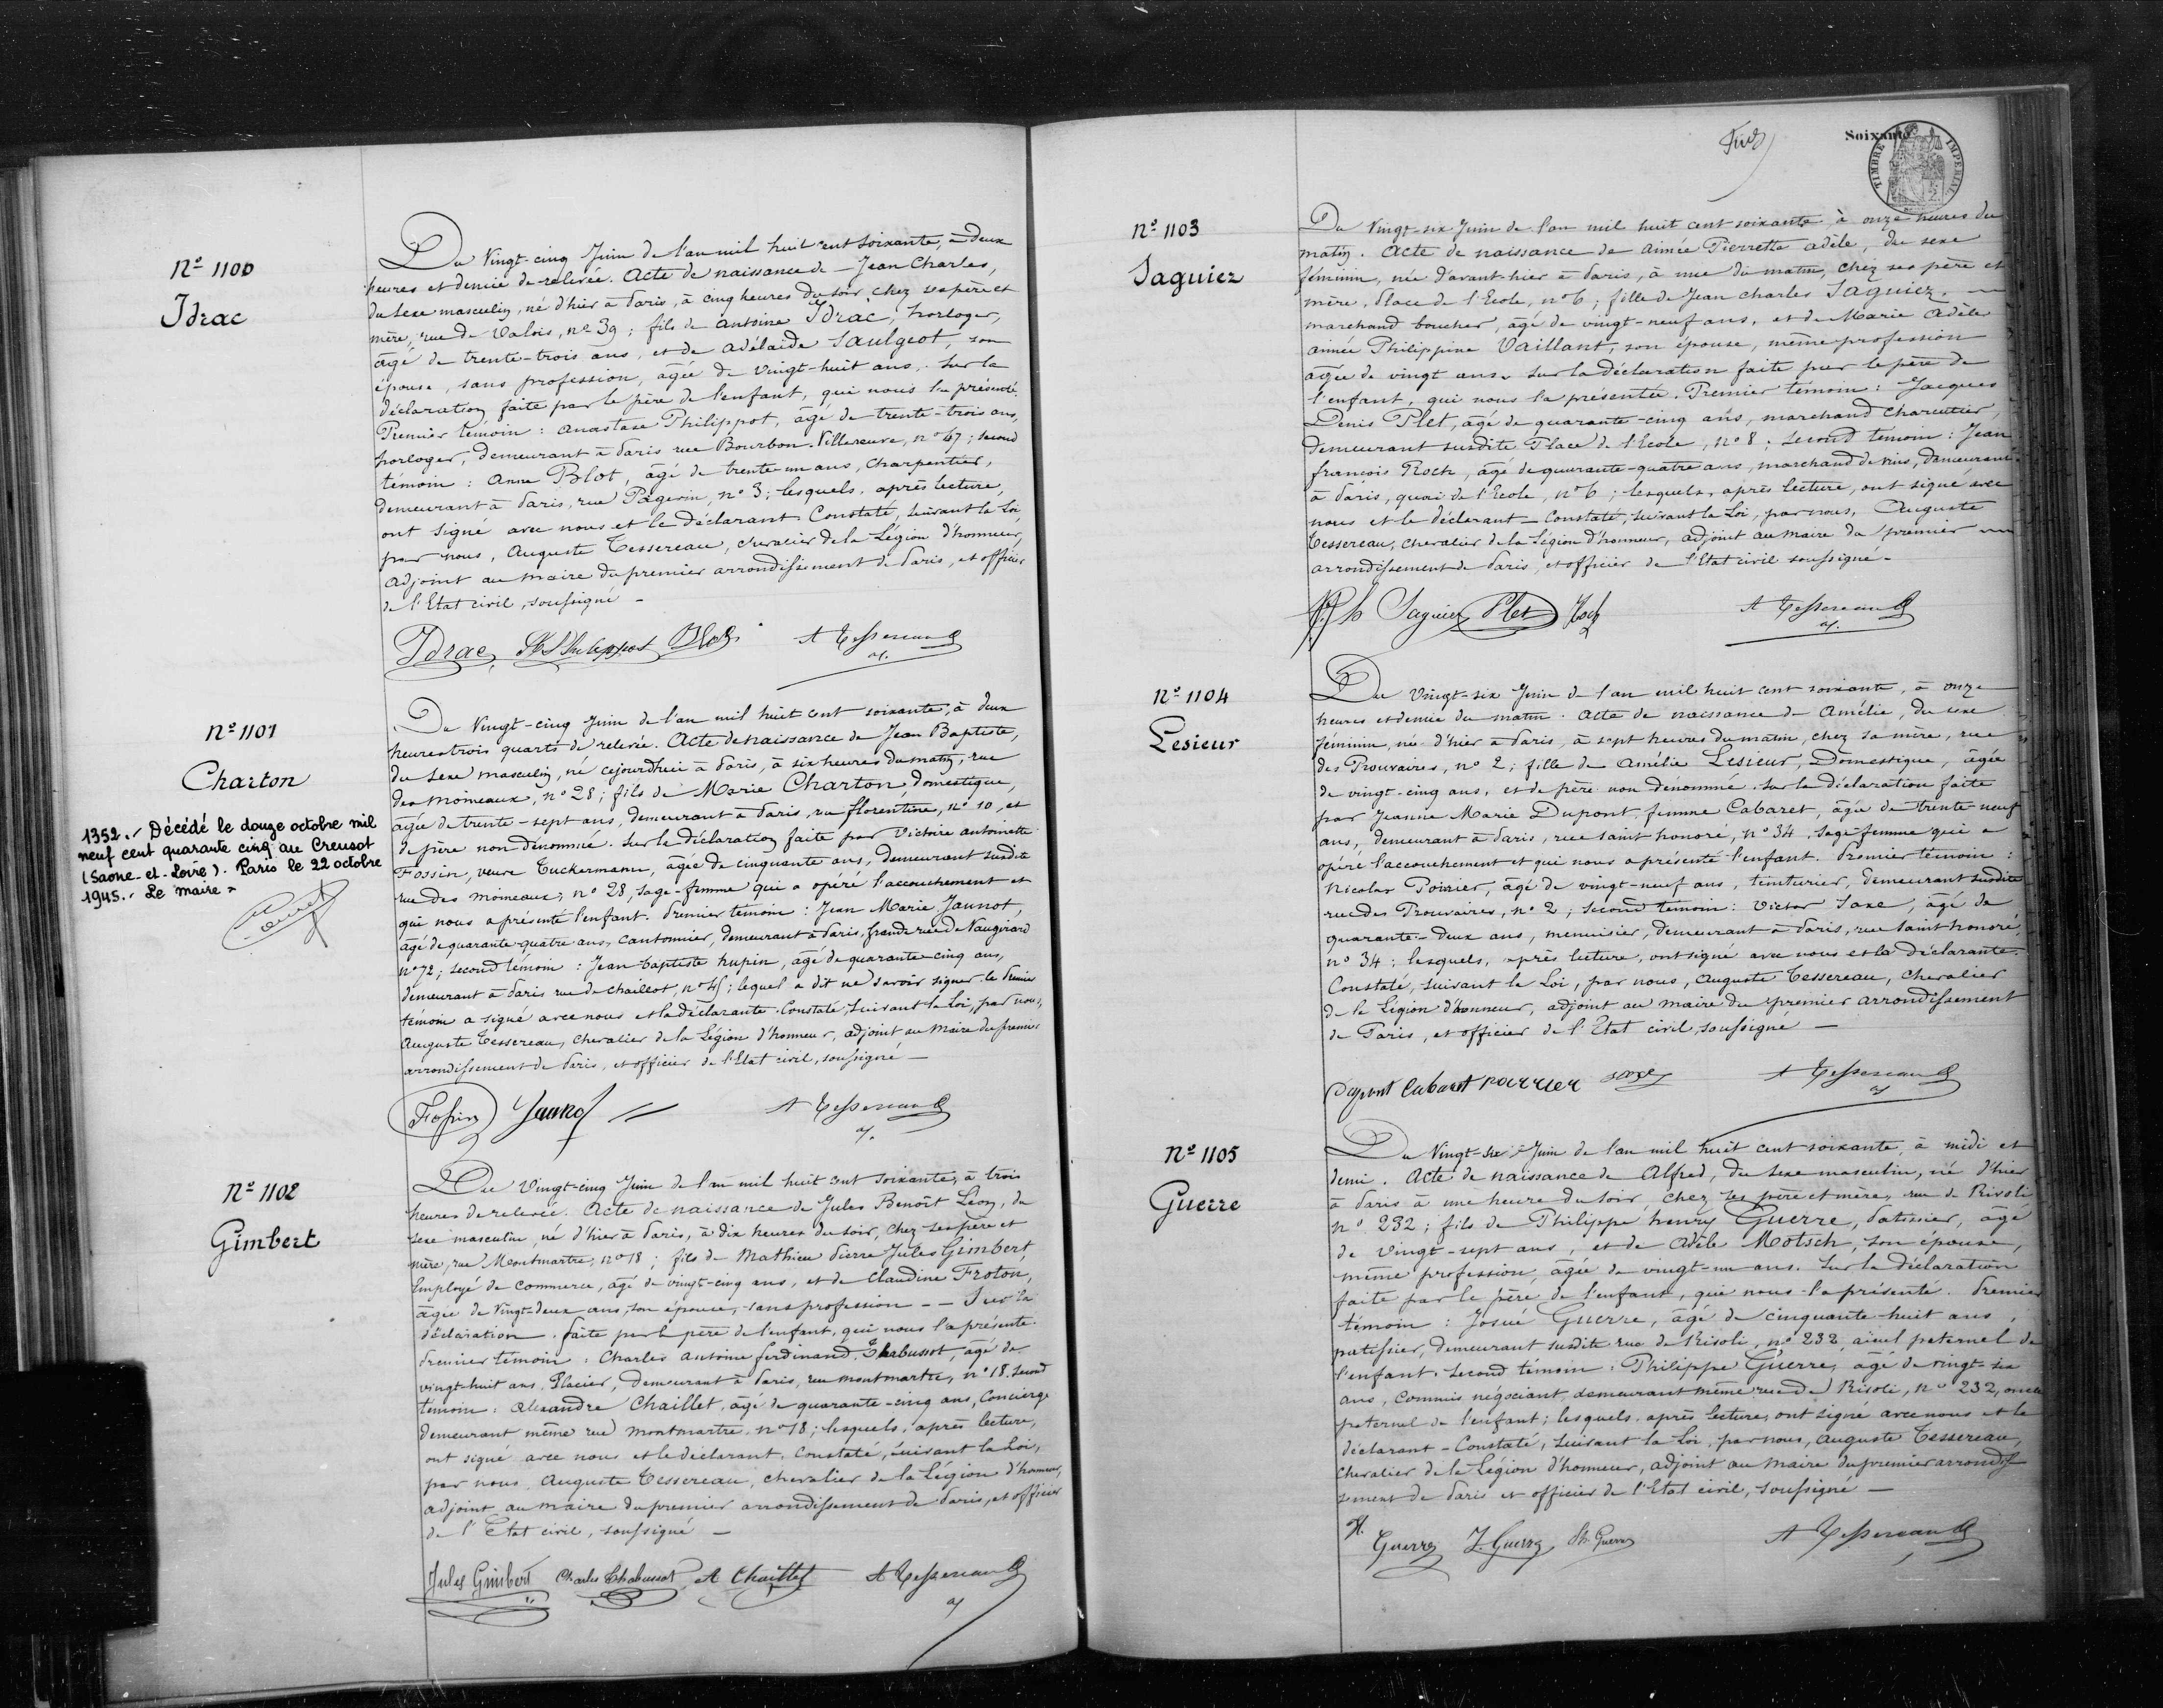 Nº 1100
Idrac
Du Vingt-cinq Juin de l'an mil huit cent soixante, à deux
heures et demie de relevée. Acte de naissance de Jean Charles,
du sexe masculin, né d'hier à Paris, à cinq heures du soir chez ses père et
mère, rue de Valois, nº 39; fils de Antoine Idrac, horloger,
âgé de trente-trois ans, et de Adélaïde Saulgeot, son
épouse, sans profession, âgée de vingt-huit ans. Sur la
déclaration faite par le père de l'enfant, qui nous l'a présenté.
Premier témoin: Anastase Philippot, âgé de trente-trois ans,
horloger, demeurant à Paris rue Bourbon-Villeneuve, nº 67; second
témoin: Anne Blot, âgé de trente-un ans, Charpentier,
demeurant à Paris, rue Pagevin, nº 3; lesquels, après lecture,
ont signé avec nous et le déclarant. Constaté, suivant la Loi
par nous, Auguste Tessereau, chevalier de la Légion d'honneur,
adjoint au maire du premier arrondissement de Paris, et officier
de l'Etat civil, soussigné -
Idrac Philippot Blot A Tessereau
Nº 1101
Charton
1352. Décédé le douze octobre mil
neuf cent quarante cinq au Creusot
(Saone-et-Loire). Paris le 22 octobre
1945. Le maire
Du Vingt-cinq Juin de l'an mil huit cent soixante, à deux
heures trois quarts de relevée. Acte de naissance de Jean Baptiste,
du sexe masculin, né cejourd'hui à Paris, à six heures du matin, rue
des Moineaux, nº 28; fils de Marie Charton, domestique,
âgée de trente-sept ans, demeurant à Paris, rue florentine, nº 10, et
de père non dénommé. Sur la déclaration faite par Victoire Antoinette
Fossin, veuve Tuckermann, âgée de cinquante ans, demeurant susdite
rue des Moineaux, nº 28, sage-femme qui a opéré l'accouchement et
qui nous a présenté l'enfant. Premier témoin: Jean Marie Jaunot,
âgé de quarante-quatre ans, cantonnier, demeurant à Paris, grande rue de Vaugirard
nº 72; second témoin: Jean-baptiste hupin, âgé de quarante-cinq ans,
demeurant à Paris rue de Chaillot, nº 45; lequel a dit ne savoir signer. le Premier
témoin a signé avec nous et la déclarante. Constaté, suivant la Loi, par nous,
Auguste Tessereau, chevalier de la Légion d'honneur, adjoint au maire du premier
arrondissement de Paris, et officier de l'Etat civil, soussigné -
Fossin Jaunot A Tessereau
Nº 1102
Gimbert
Du Vingt-cinq Juin de l'an mil huit cent soixante, à trois
heures de relevée. Acte de naissance de Jules Benoît Léon, du
sexe masculin, né d'hier à Paris, à dix heures du soir, chez ses père et
mère, rue Montmartre, nº 18; fils de Mathieu Pierre Jules Gimbert,
Employé de commerce, âgé de vingt-cinq ans, et de Claudine Froton,
âgée de vingt-deux ans, son épouse, sans profession -- Sur la
déclaration faite par le père de l'enfant, qui nous l'a présenté.
Premier témoin: Charles Antoine ferdinand Chabussot, âgé de
vingt-huit ans, Glacier, demeurant à Paris, rue Montmartre, nº 18. Second
témoin: Alexandre Chaillet, âgé de quarante-cinq ans, Concierge
demeurant même rue Montmartre, nº 18; lesquels, après lecture,
ont signé avec nous et le déclarant. Constaté, suivant la Loi,
par nous, Auguste Tessereau, chevalier de la Légion d'honneur,
adjoint au maire du premier arrondissement de Paris, et officier
de l'Etat civil, soussigné -
Jules Gimbert Charles Chabussot A Chaillet A Tessereau
Soixante
TIMBRE IMPERIAL
Nº 1103
Saguiez
Du Vingt-six Juin de l'an mil huit cent soixante à onze heures du
matin. Acte de naissance de Aimée Pierrette Adèle, du sexe
féminin, née d'avant-hier à Paris, à une du matin, chez ses père et
mère, Place de l'Ecole, nº 6; fille de Jean Charles Saguiez,
marchand boucher, âgé de vingt-neuf ans, et de Marie Adèle
aimée Philippine Vaillant, son épouse, même profession
âgée de vingt ans. Sur la déclaration faite par le père de
l'enfant, qui nous l'a présentée. Premier témoin: Jacques
Denis Plet, âgé de quarante-cinq ans, marchand charcutier,
demeurant susdite Place de l'Ecole, nº 8; second témoin: Jean
françois Roch, âgé de quarante-quatre ans, marchand de vins, demeurant
à Paris, quai de l'Ecole, nº 6; lesquels, après lecture, ont signé avec
nous et le déclarant - Constaté, suivant la Loi, par nous, Auguste
Tessereau, chevalier de la Légion d'honneur, adjoint au maire du premier
arrondissement de Paris, et officier de l'Etat civil soussigné -
Saguiez Plet Roch A Tessereau
Nº 1104
Lesieur
Du Vingt-six Juin de l'an mil huit cent soixante, à onze
heures et demie du matin. Acte de naissance de Amélie, du sexe
féminin, née d'hier à Paris, à sept heures du matin, chez sa mère, rue
des Prouvaires, nº 2; fille de Amélie Lesieur, Domestique, âgée
de vingt-cinq ans, et de père non dénommé. Sur la déclaration faite
par Jeanne Marie Dupont, femme Cabaret, âgée de trente-neuf
ans, demeurant à Paris, rue saint honoré, nº 34, sage-femme qui a
opéré l'accouchement et qui nous a présenté l'enfant. Premier témoin:
Nicolas Poirier, âgé de vingt-neuf ans, teinturier, demeurant susdite
rue des Prouvaires, nº 2; second témoin: Victor Saxe, âgé de
quarante-deux ans, menuisier, demeurant à Paris, rue saint honoré,
nº 34; lesquels, après lecture, ont signé avec nous et la déclarante.
Constaté, suivant la Loi, par nous, Auguste Tessereau, Chevalier
de la Légion d'honneur, adjoint au maire du premier arrondissement
de Paris, et officier de l'Etat civil, soussigné -
Dupont Cabaret A Tessereau
Nº 1105
Guerre
Du Vingt-six Juin de l'an mil huit cent soixante, à midi et
demi. Acte de naissance de Alfred, du sexe masculin, né d'hier
à Paris à une heure du soir, chez ses père et mère, rue de Rivoli
nº 232; fils de Philippe henry Guerre, Patissier, âgé
de vingt-sept ans, et de Adèle Motsch, son épouse,
même profession, âgée de vingt-un ans. Sur la déclaration
faite par le père de l'enfant, qui nous l'a présenté. Premier
témoin: Josué Guerre, âgé de cinquante-huit ans,
patissier, demeurant susdite rue de Rivoli, nº 232, aïeul paternel de
l'enfant. second témoin: Philippe Guerre, âgé de vingt-six
ans, Commis négociant, demeurant même rue de Rivoli, nº 232, oncle
paternel de l'enfant; lesquels, après lecture, ont signé avec nous et le
déclarant - Constaté, suivant la Loi, par nous, Auguste Tessereau,
chevalier de la Légion d'honneur, adjoint au maire du premier arrondis
sement de Paris et officier de l'Etat civil, soussigné -
H. Guerre J. Guerre Ph. Guerre A Tessereau